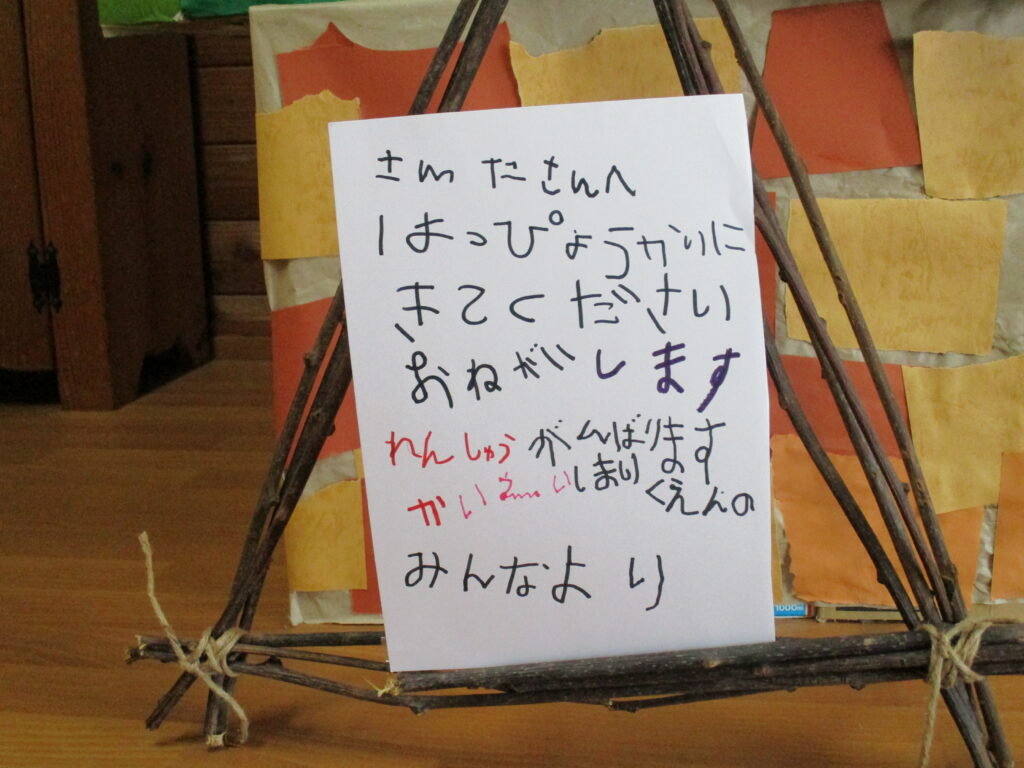 さんたさんへ
はっぴょうかいに
きてください
おねがいします
れんしゅうがんばります
くえんの
みんなより
1000m